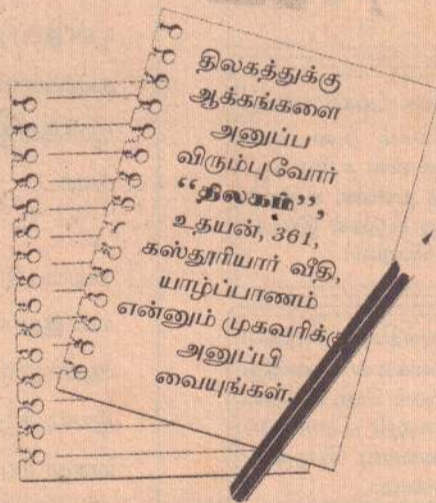 திலகத்துக்கு
ஆக்கங்களை
அனுப்ப
விரும்புவோர்
“திலகம்”,
உதயன், 361,
கஸ்தூரியார் வீதி,
யாழ்ப்பாணம்
என்னும் முகவரிக்கு
அனுப்பி
வையுங்கள்.